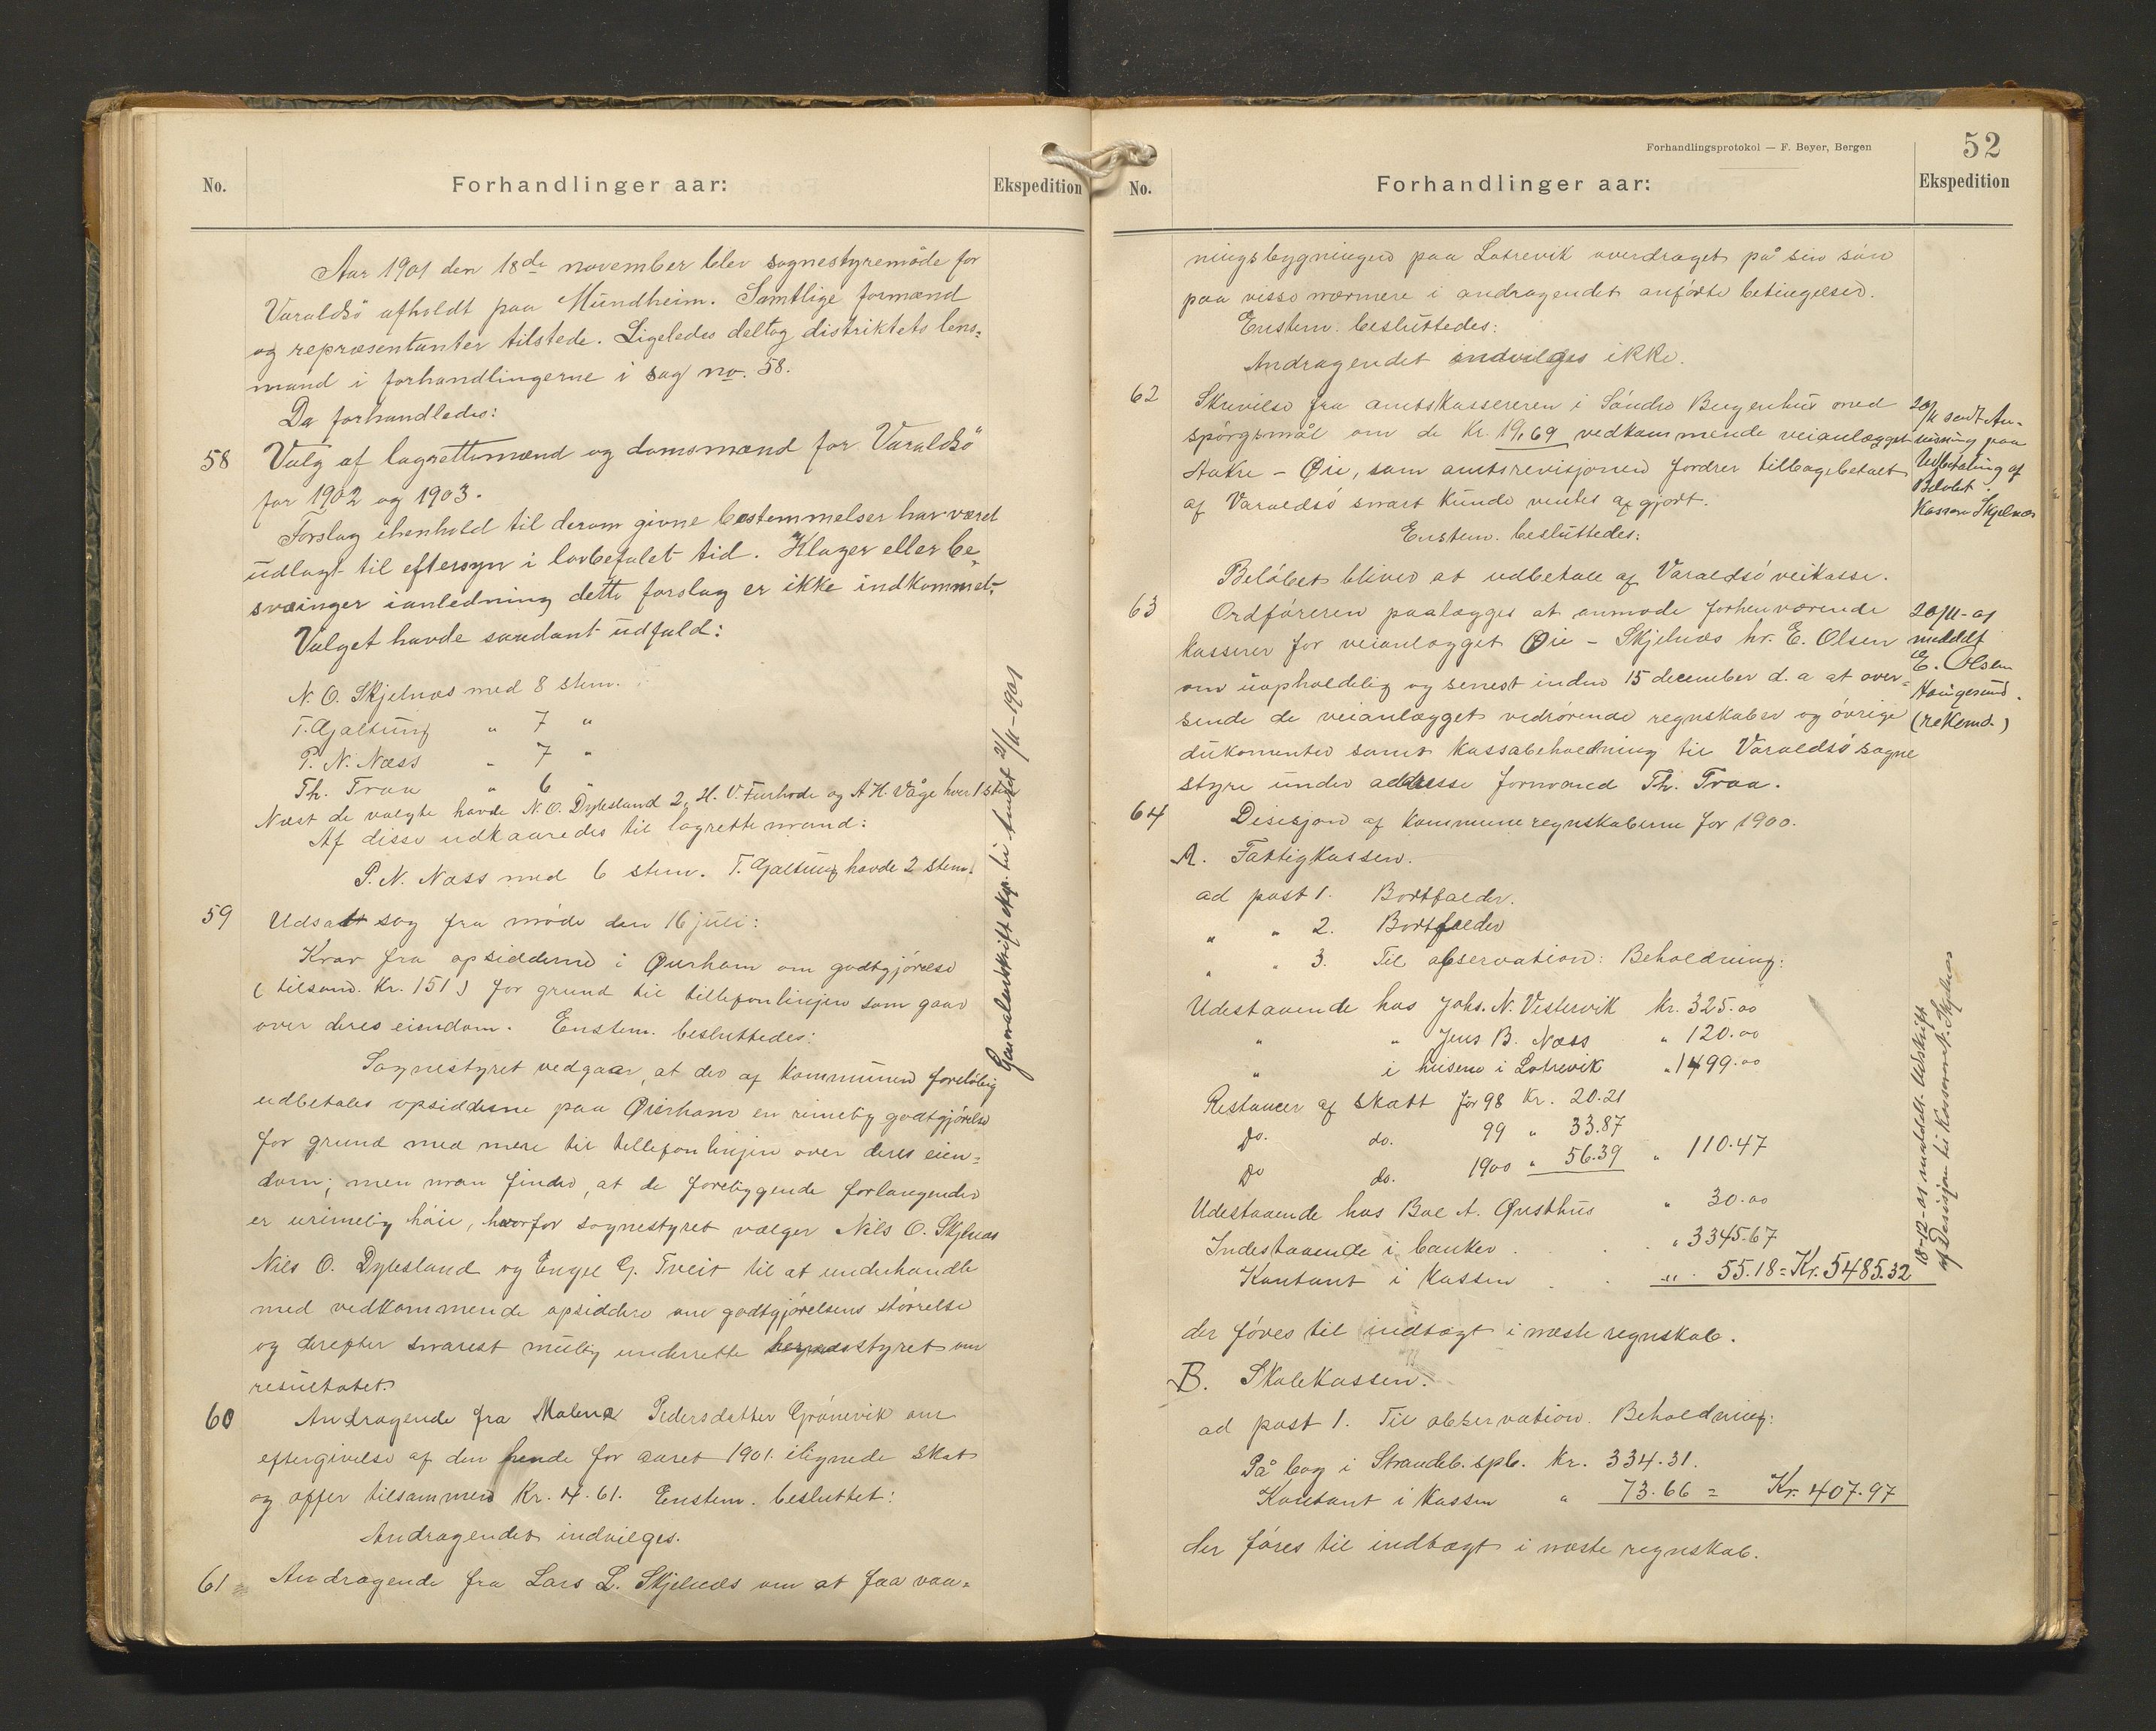 No.
Forhandlinger aar:
Ekspedition
Aar 1901 den 18de november blev sognestyremöde for
Varaldsö afholdt paa Mundheim. Samtlige formænd
og repræsentanter tilstede. Ligeledes deltog distriktets lens=
mand i forhandlingerne i sag no. 58.
Da forhandledes:
58 Valg af lagrettemænd og domsmænd for Varaldsö
for 1902 og 1903.
Forslag ihenhold til derom givne bestemmelser har været
udlagt til eftersyn i lovbefalet tid. Klager eller be=
sværinger ianledning dette forslag er ikke indkommet.
Valget havde saadant udfald:
N. O. Skjelnæs med 8 stem.
T. Gjaltung " 7 "
P. N. Næss " 7 "
Th. Traa " 6 "
Næst de valgte havde N. O. Dylesland 2, H. V. Furhode og A H. Våge hver 1 stem
Af disse udkaaredes til lagrettemand:
P. N. Næss med 6 stem. T. Gjaltung havde 2 stem.
59 Udsat sag fra möde den 16 juli:
Krav fra opsidderne i Øierham om godtgjörelse
(tilsam. Kr. 151) for grund til tillefonlinjen som gaar
over deres eiendom. Enstem. besluttedes:
Sognestyret vedgaar, at der af kommunen forelöbig
udbetales opsidderne paa Øierham en rimelig godtgjörelse
for grund med mere til tillefonlinjen over deres eien=
dom; men man finder, at de foreliggende forlangender
er urimelig höie, hvorfor sognestyret vælger Nils O. Skjelnæs
Nils O. Dylesland og Engel G. Tveit til at underhandle
med vedkommende opsiddere om godtgjörelsens störrelse
og derefter snarest mulig underrette herredsstyret om
resultatet.
60 Andragende fra Malena Pedersdatter Grönevik om
eftergivelse af den hende for aaret 1901 ilignede skat
og offer tilsammen Kr. 4.61. Enstem. besluttet:
Andragendet indvilges.
61 Andragende fra Lars L. Skjelnæs om at faa vaa=
Genralutskrift eksp. til amtet 21/11-1901
Forhandlingsprotokol — F. Beyer, Bergen
52
No.
Forhandlinger aar:
Ekspedition
ningsbygningen paa Lotrevik overdraget på sin sön
paa visse nærmere i andragendet anförte betingelser.
Enstem. besluttedes:
Andragendet indvilges ikke.
62 Skrivelse fra amtskassereren i Söndre Bergenhus med
spörgsmål om de Kr. 19,69 vedkommende veianlægget
Aakre - Øie, som amtsrevisjonen fordrer tilbagebetalt
af Varaldsö snart kunde ventes afgjort.
Enstem. besluttedes:
Belöbet bliver at udbetale af Varaldsö veikasse.
20/11 sendt An-
visning paa
Udbetaling af
Belöbet
Kasserer Skjelnæs
63 Ordföreren paalægges at anmode forhenværende
kasserer for veianlægget Øie - Skjelnæs hr. E. Olsen
om uopholdelig og senest inden 15 december d. a at over=
sende de veianlægget vedrörende regnskaber og övrige
dukomenter samt kassabeholdning til Varaldsö sogne
styre under addresse formand Th. Traa.
20/11-01
meddelt
E. Olsen
Haugesund.
(rekomd.)
64 Desisjon af kommuneregnskaberne for 1900.
A. Fattigkassen.
ad post 1. Bortfalder.
" " 2. Bortfalder
" " 3. Til observation: Beholdning:
Udestaaende hos Johs. N. Vestervik kr. 325.00
" " Jens B. Næss " 120.00
" i husene i Lotrevik " 1499.00
Restancer af skatt for 98 Kr. 20.21
Do. do. 99 " 33.87
Do do. 1900 " 56.39 " 110.47
Udestaaende hos Boe A. Øvsthus " 30.00
Indestaaende i banker . . . " 3345.67
Kontant i kassen . . " 55.18 = Kr. 5485.32
der föres til indtægt i næste regnskab.
B. Skolekassen.
ad post 1. Til observation. Beholdning:
På bog i Strandeb. spb. Kr. 334.31.
Kontant i kassen " 73.66 = Kr. 407.97
der föres til indtægt i næste regnskab.
18-12-01 meddelt Udskrift
af Desisjon til Kasserer N. Skjelnæs